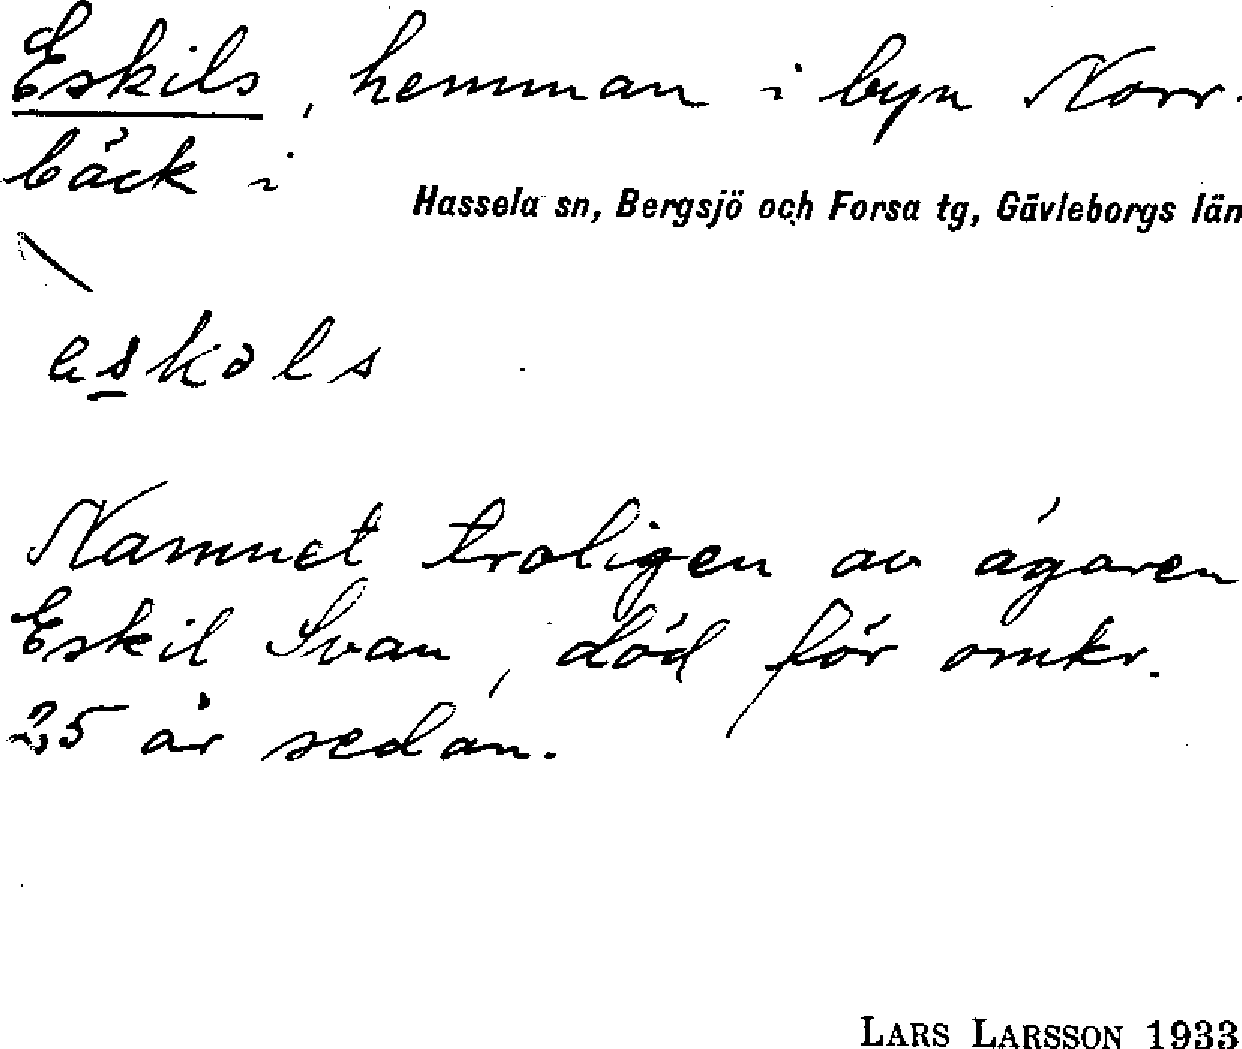 Eskils, hemman i byn Norr-
bäck i
Hassela sn, Bergsjö och Forsa tg, Gävleborgs län
eskəls
Namnet troligen av ägaren
Eskil Svan, död för omkr.
25 år sedan.
LARS LARSSON 1933